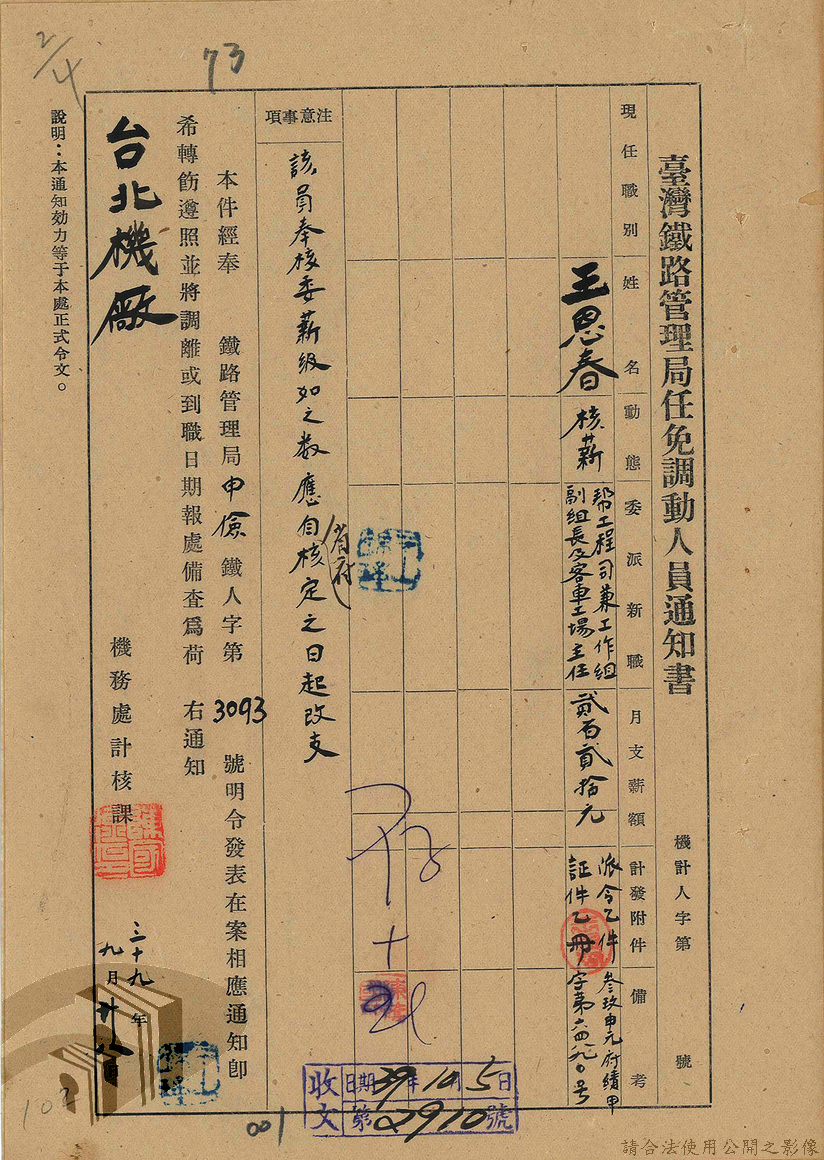 2/4
73
臺灣鐵路管理局任免調動人員通知書
機計人字第　號
現任職別
姓名
動態
委派新職
月支薪額
計發附件
備考
王恩春
核薪
幫工程司兼工作組
副組長及客車工場主任
貳百貳拾元
派令乙件
証件乙冊
叁玖申元府績甲
字第六四九〇号
注意事項
該員奉核委薪級如之數應自核定之日起改支
省府
本件經奉　鐵路管理局申儉鐵人字第3093號明令發表在案相應通知卽
希轉飭遵照並將調離或到職日期報處備査爲荷　右通知
台北機廠
機務處計核課
三十九年
九月廿八日
説明：本通知効力等于本處正式令文。
存
收文
日期39年10月5日
第2910號
001
102
請合法使用公開之影像